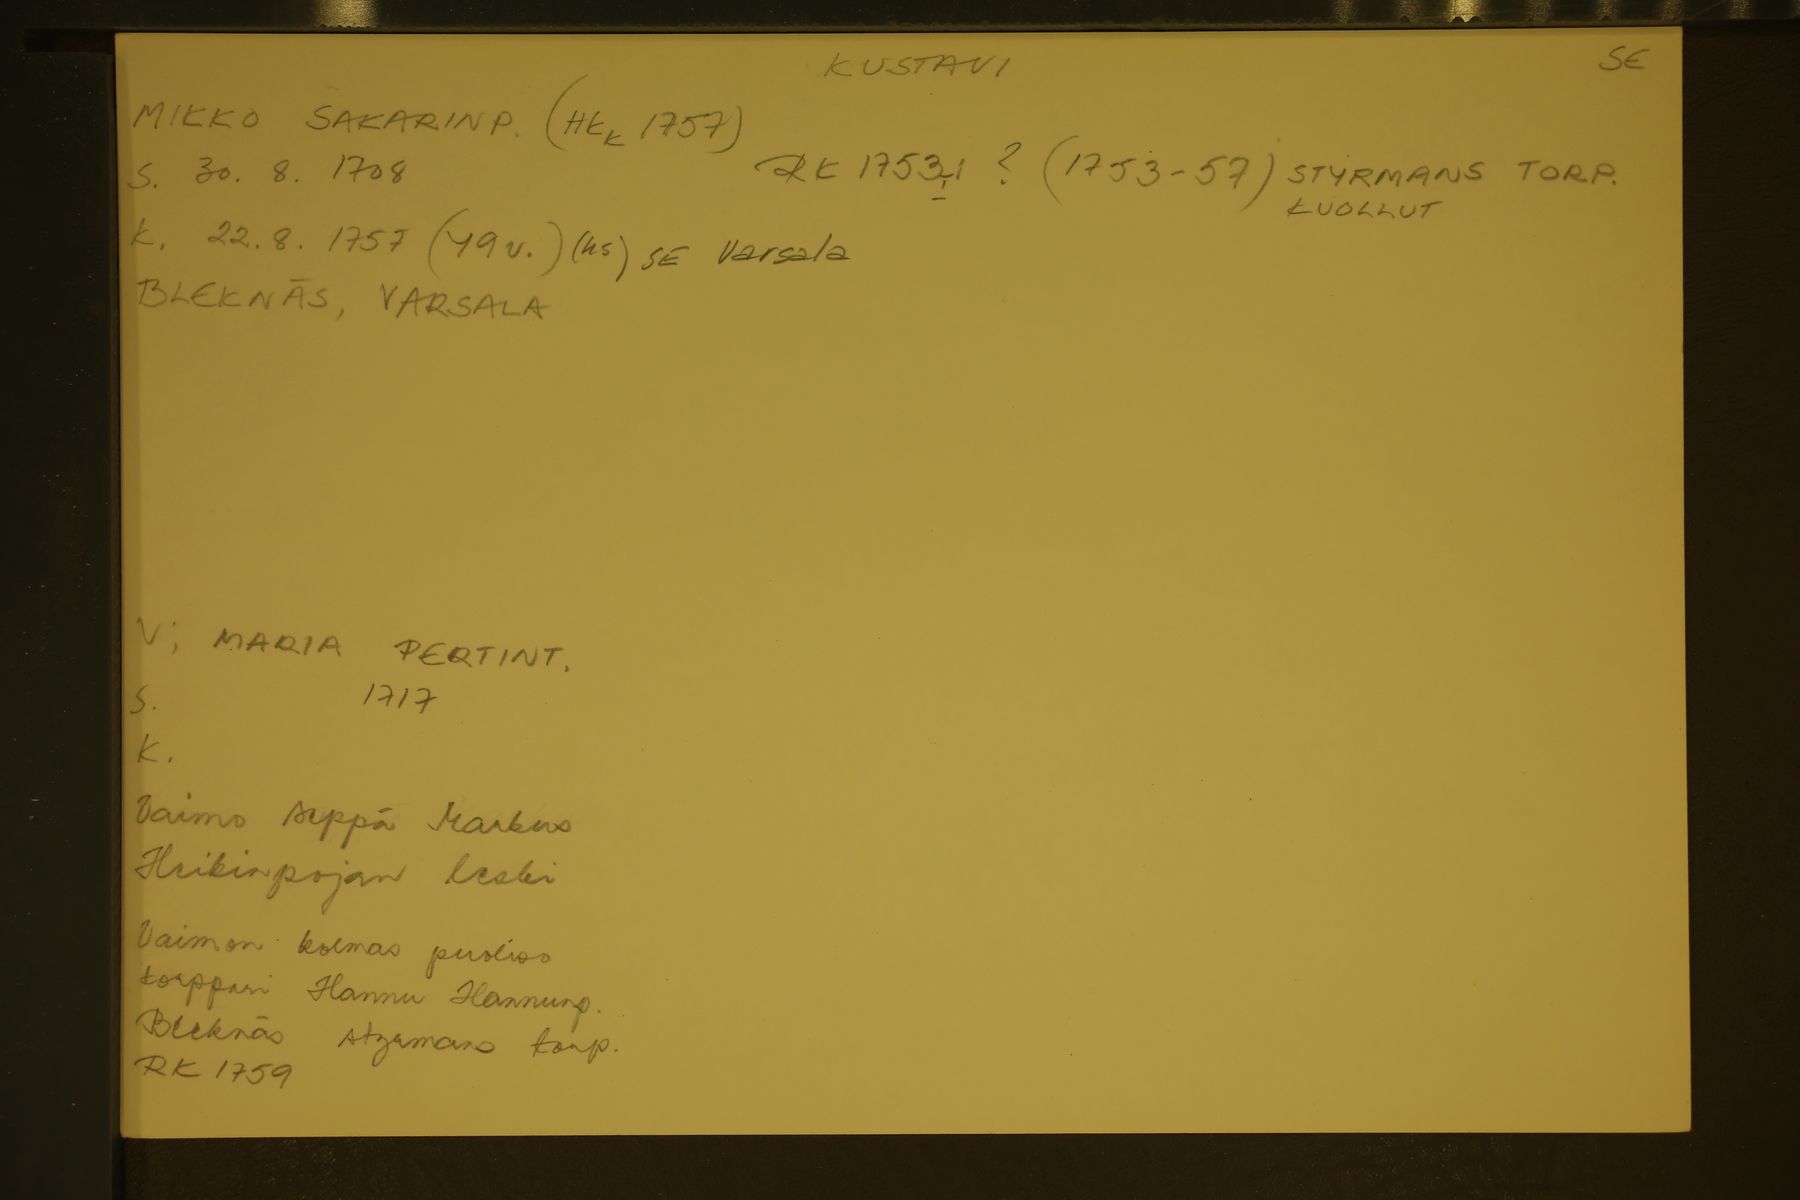 KUSTAVI SE
MIKKO SAKARINP. (HKK 1757)
S. 30. 8. 1708 RK 1753,1 ? (1753-57) STYRMANS TORP.
KUOLLUT
K. 22.8. 1757 (49 v.) (ks) SE Varsala
BLEKNÄS, VARSALA
V; MARIA PERTINT.
S. 1717
K.
Vaimo seppä Markus
Heikinpojan leski
Vaimon kolmas puoliso
torppari Hannu Hannunp.
Bleknäs styrmans torp.
RK 1759